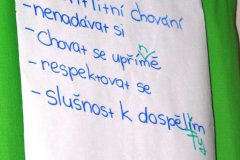 chování
-nenadávat si
-Chovat se upřímě
n
-respektovat se
-slušnost k dospělím